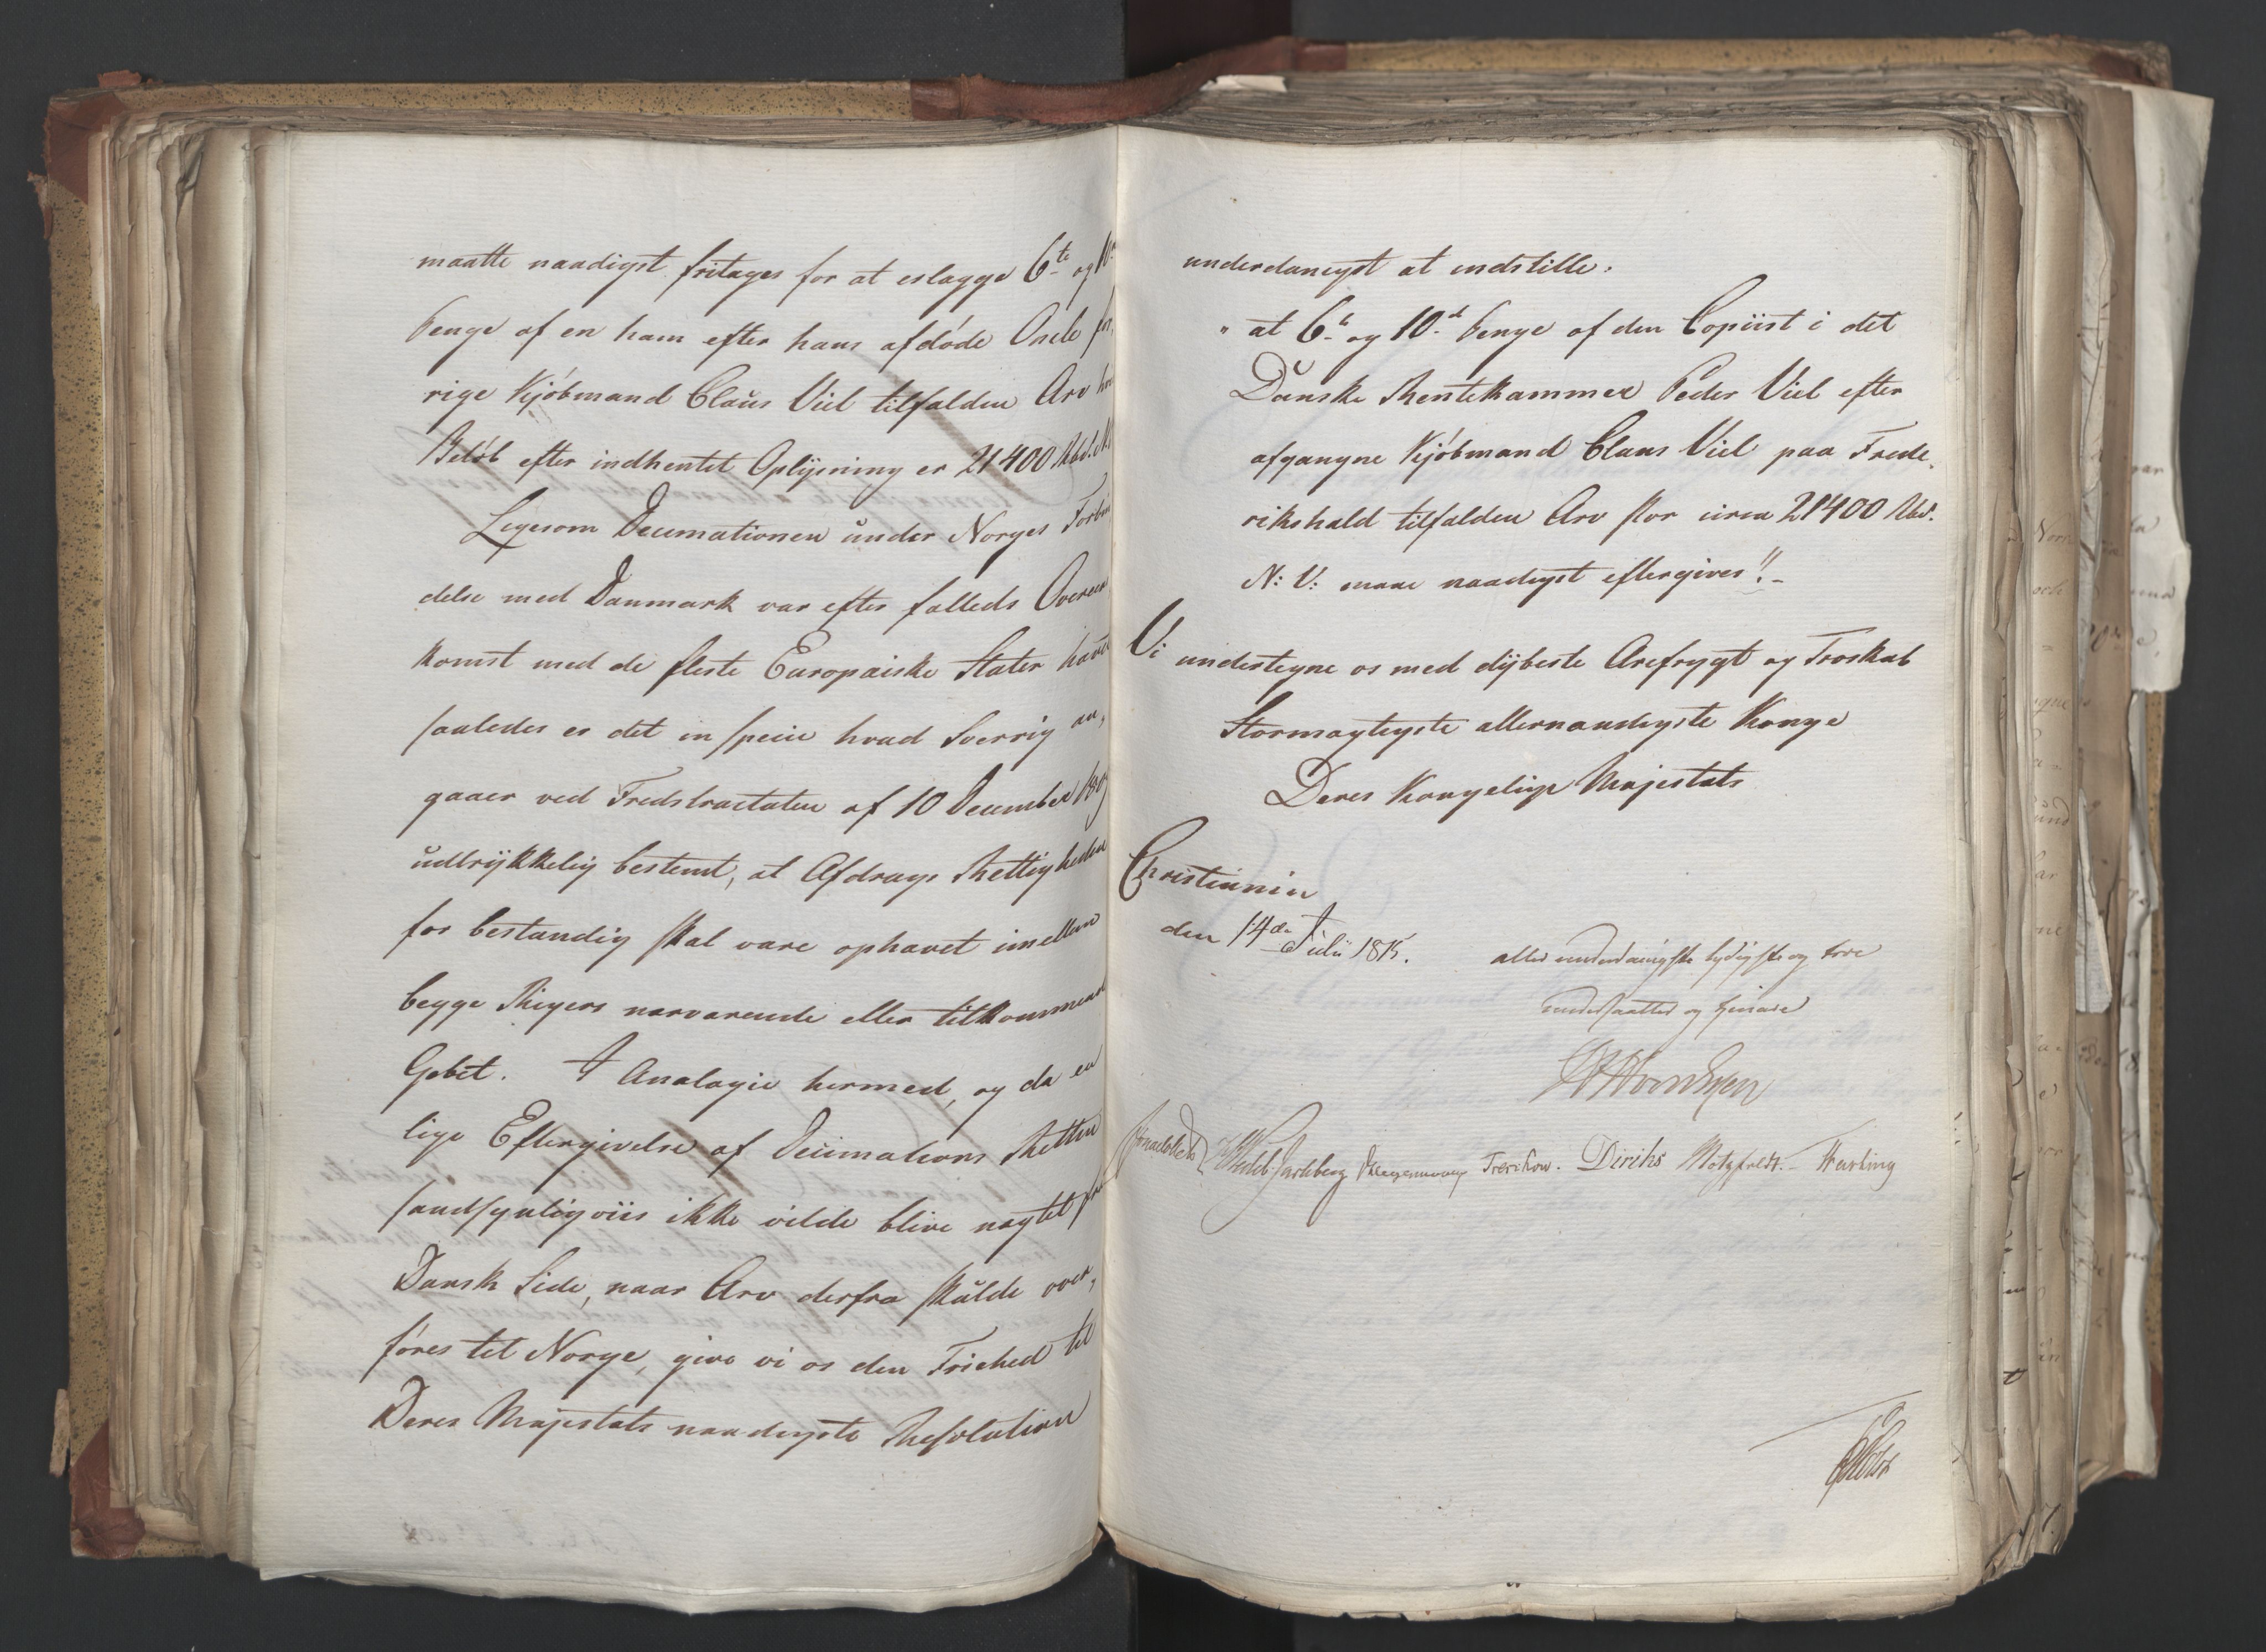 maatte naadigst fritages for at erlægge 6te og 10de
Penge af en ham efter hans afdöde Oncle for,
rige Kjöbmand Claus Viel tilfalden Arv hvis
Belöb efter indhentet Oplysning er 21400 Rbd. N.
Ligesom Decimationen under Norges Forbin
delse med Danmark var efter fælleds Overeens
komst med de fleste Europæiske Stater hævet
saaledes er det in specie hvad Sverrig an,
gaaer ved Fredstractaten af 10 December 1809
udtrykkelig bestemt, at Afdrags Rettigheden
for bestandig skal være ophævet imellem
begge Rigers nærværende eller tilkommende
Gebet. I Analogie hermed, og da en
lige Eftergivelse af Decimations Retten
sandsynligviis ikke vilde blive nægtet fra
Dansk Side, naar Arv derfra skulde over,
föres til Norge, give vi os den Friehed til
Deres Majestæts naadigste Resolution
underdanigst at indstille:
" at 6te og 10de Penge af den Copiist i det
Danske Rentekammer Peder Viel efter
afgangne Kjöbmand Claus Viel paa Frede,
rikshald tilfalden Arv stor circa 21400 Rbd.
N: V: maae naadigst eftergives".
Vi undertegne os med dybeste Ærefrygt og Troskab
Stormægtigste allernaadigste Konge
Deres Kongelige Majestæts
Christiania
den 14de Julii 1815.
allerunderdanigste lydigste og troe
undersaatter og tjenere
Sommerhielm
Wedel-Jarlsberg Treschow. Diriks Motzfeldt. Hansteen
Holst